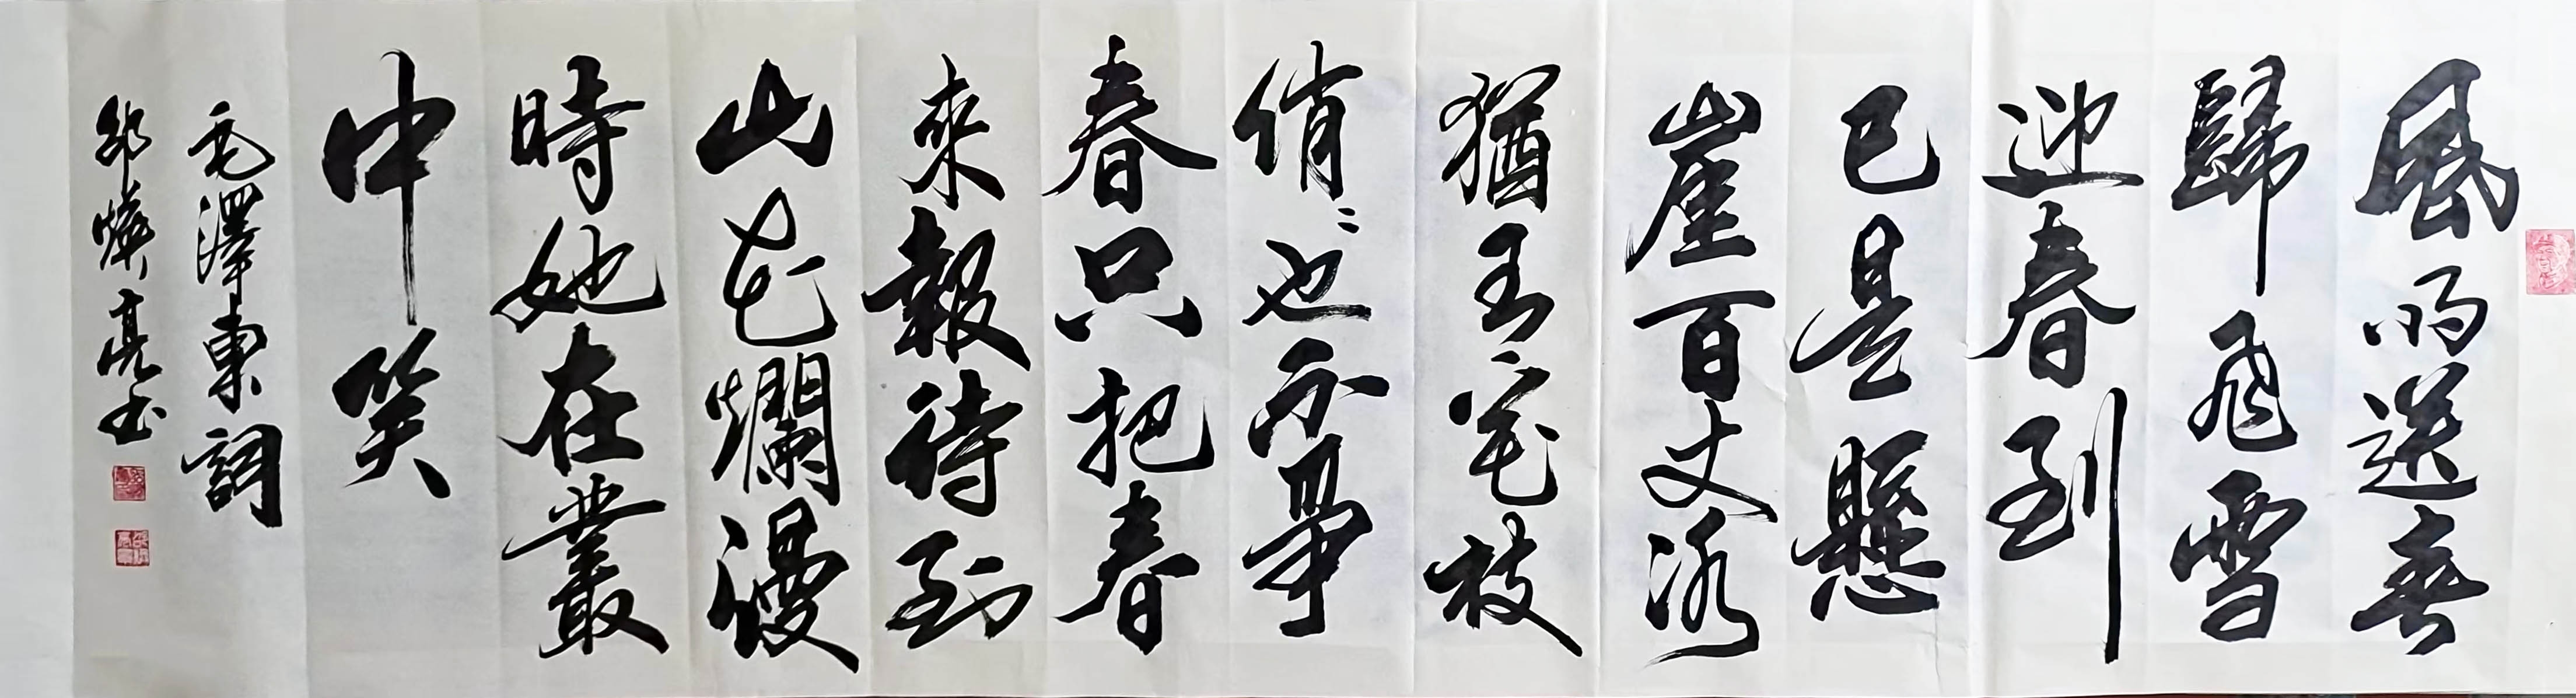 風雨送春
歸飛雪
迎春到
已是懸
崖百丈冰
猶有花枝
俏〻也不爭
春只把春
來報待到
山花爛漫
時她在叢
中笑
毛澤東詞
邵燦亮书